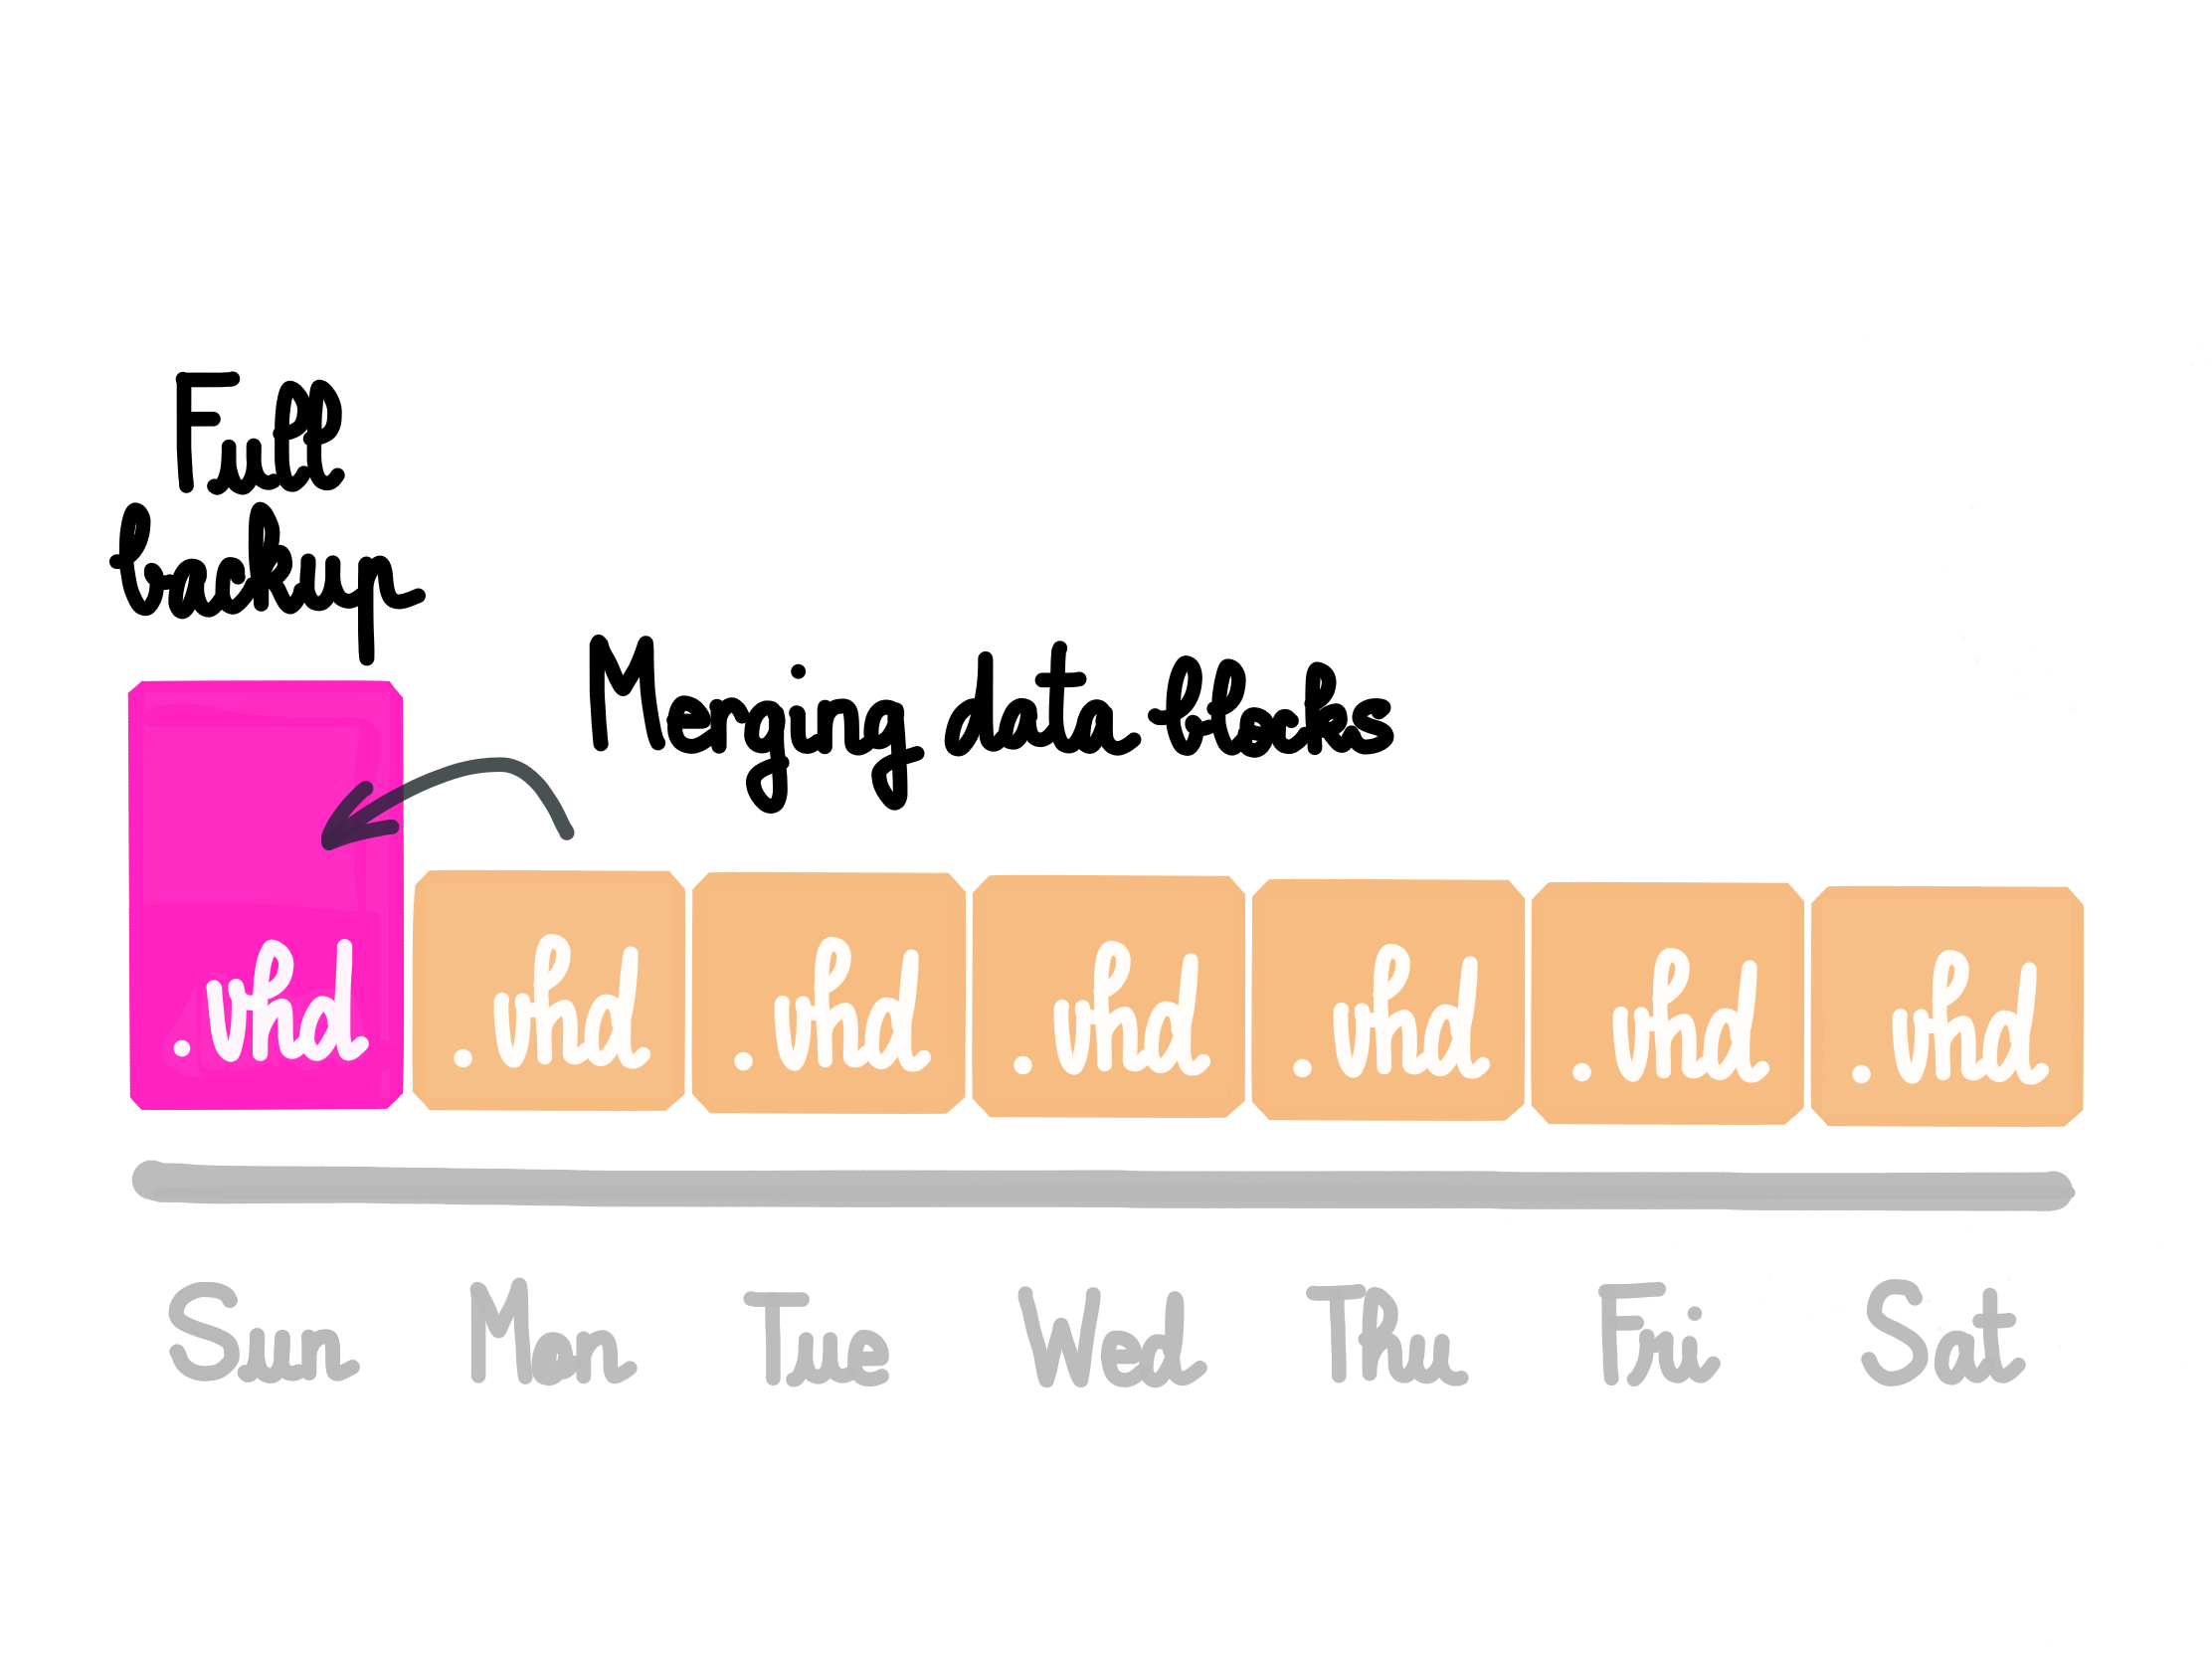 Full
backup
Merging data blocks
.vhd .vhd .vhd .vhd .vhd .vhd .vhd
Sun Mon Tue Wed Thu Fri Sat